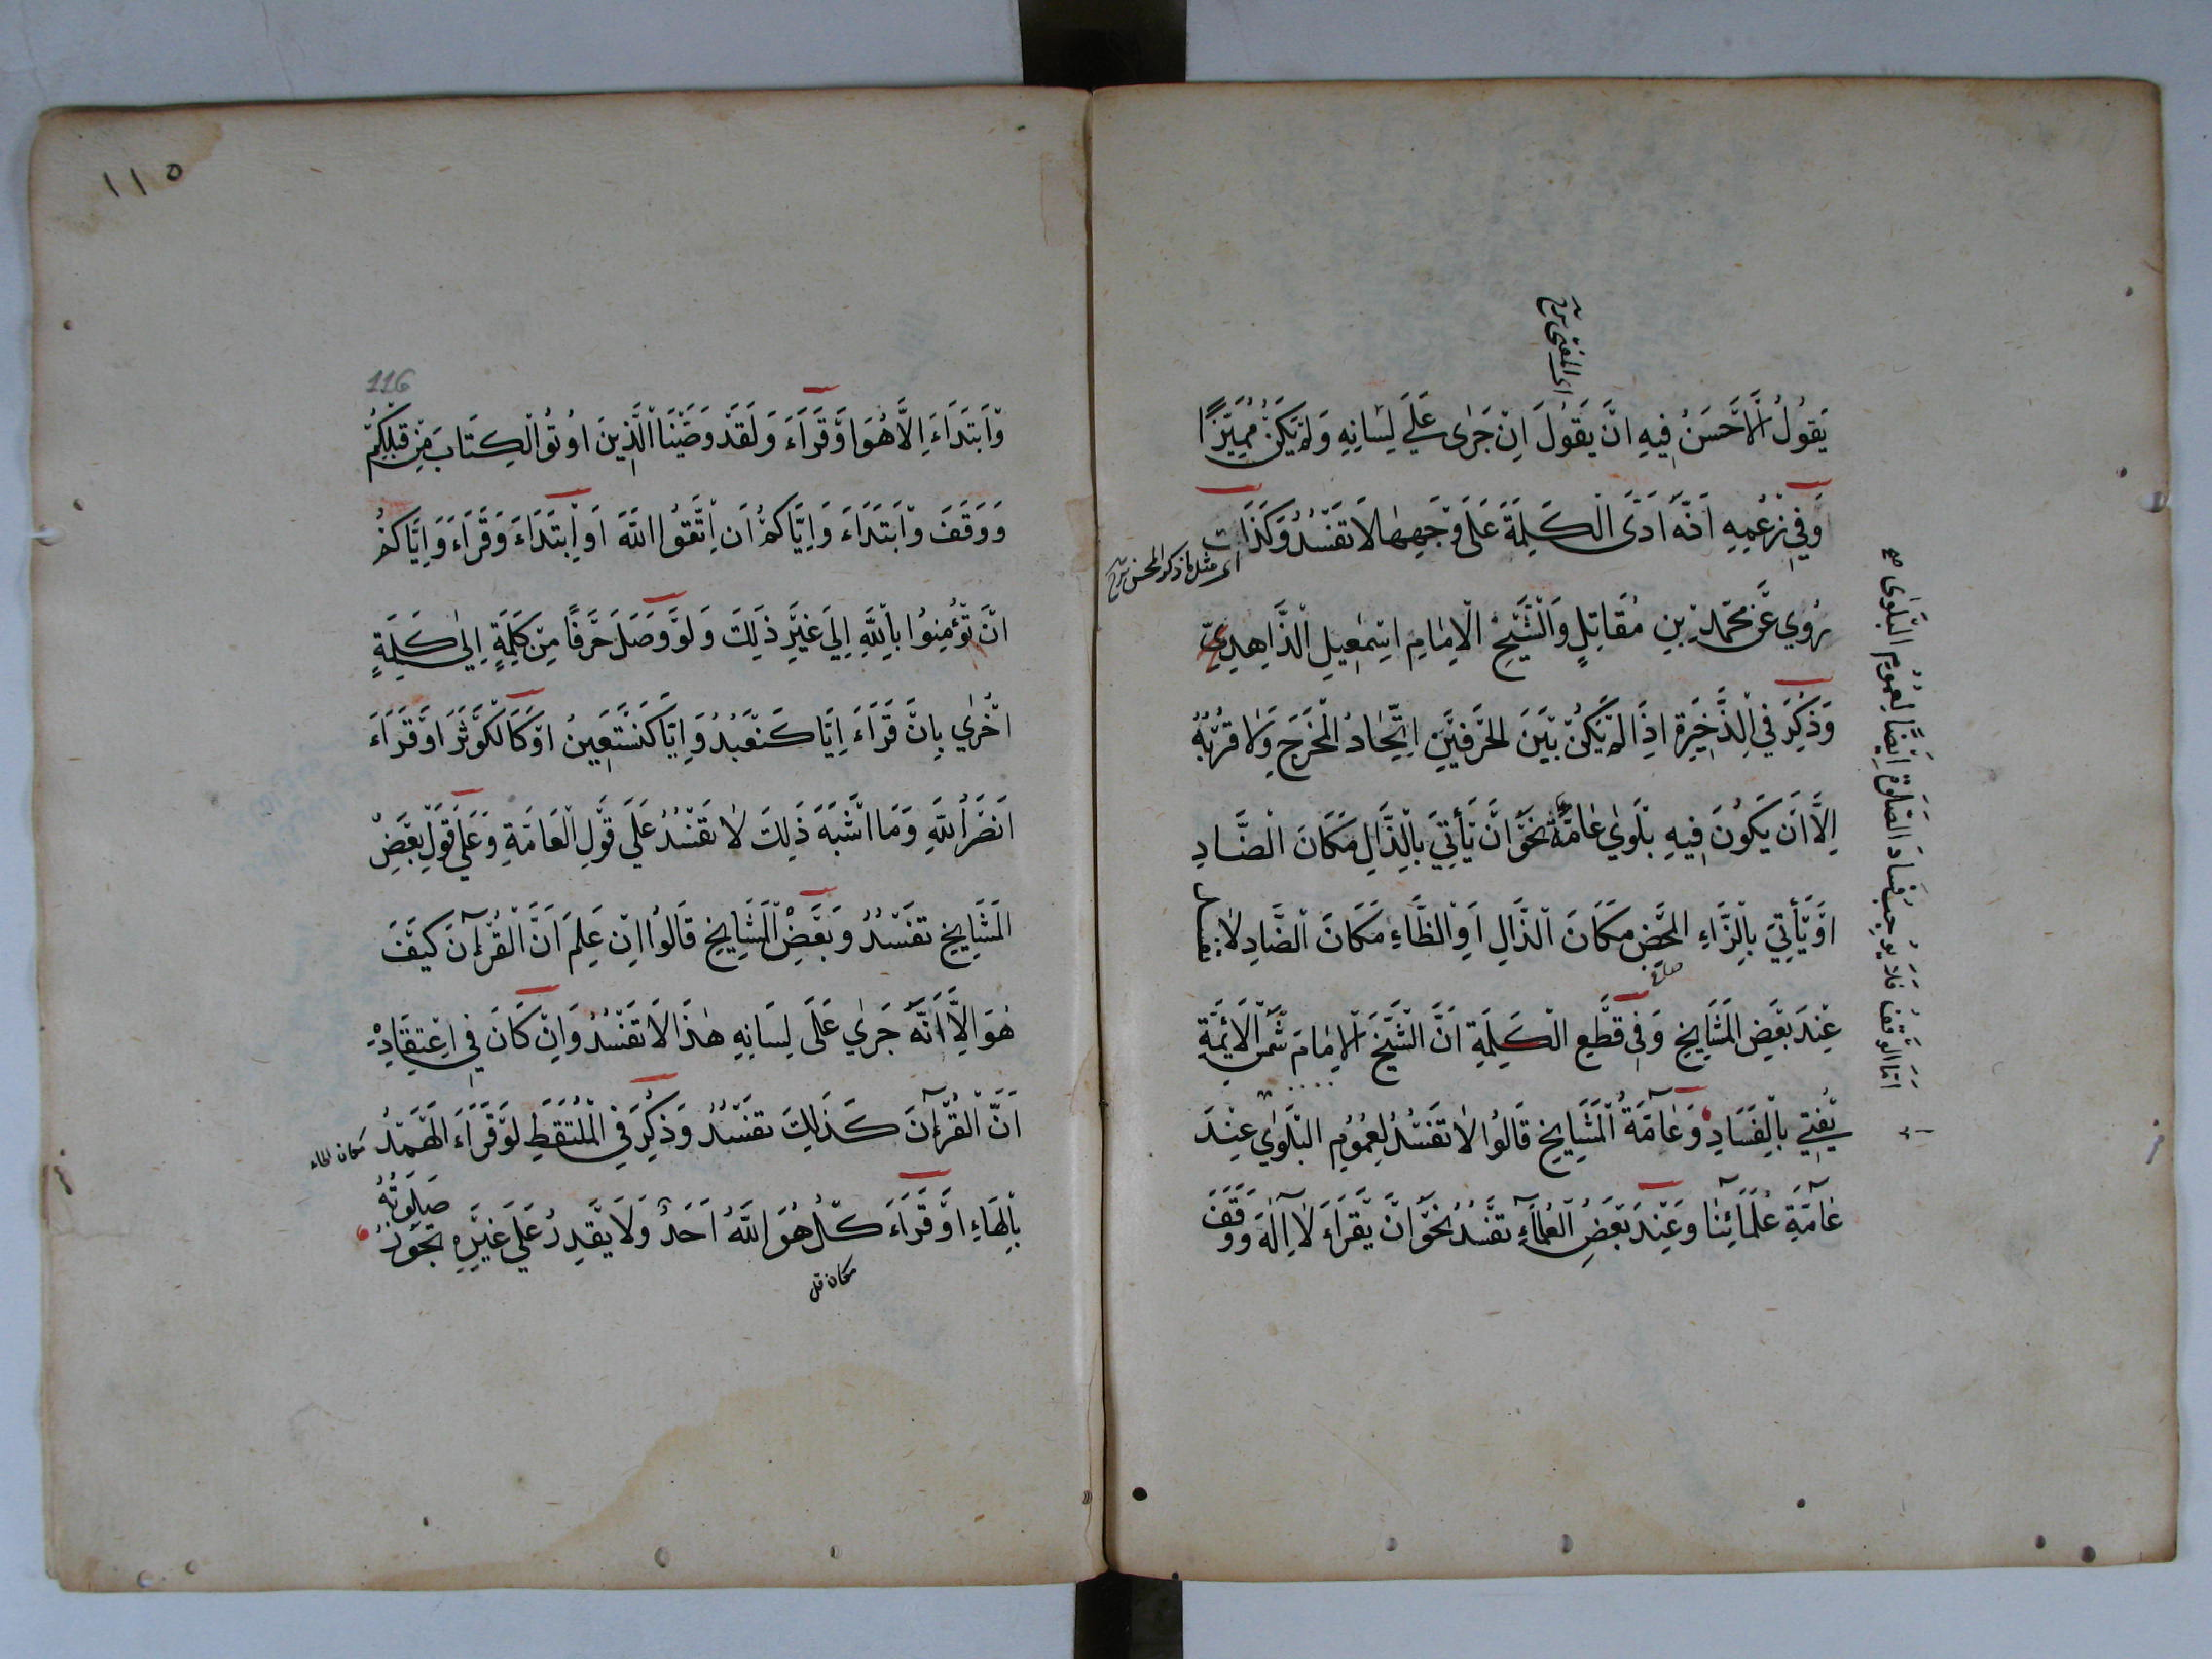 اى المفتى شرح
يَقُولُ الْاَحْسَنُ فِيهِ اَنْ يَقُولَ اِنْ جَرٰى عَلَى لِسَانِهِ وَلَمْ يَكُنْ مُمَيِّزًا
وَفِي زَعْمِهِ اَنَّهُ اَدَّى الْكَلِمَةَ عَلَى وَجْهِهَا لَا تَفْسُدُ وَكَذَا
اى مثل ما ذكر المحسن شرح
رُوِيَ عَنْ مُحَمَّدِ بْنِ مُقَاتِلٍ وَالشَّيْخِ الْاِمَامِ اِسْمٰعِيلِ الزَّاهِدِيِّ
وَذُكِرَ فِي الذَّخِيرَةِ اِذَا لَمْ يَكُنْ بَيْنَ الْحَرْفَيْنِ اِتِّحَادُ الْمَخْرَجِ وَلَا قُرْبُهُ
اِلَّا اَنْ يَكُونَ فِيهِ بَلْوٰي عَامَّةٌ نَحْوُ اَنْ يَأْتِيَ بِالذَّالِ مَكَانَ الضَّادِ
اَوْ يَأْتِيَ بِالزَّاءِ الْمَحْضِ مَكَانَ الذَّالِ اَوِ الظَّاءِ مَكَانَ الضَّادِ لَا تفسد
عِنْدَ بَعْضِ الْمَشَايِخِ وَفِي قَطْعِ الْكَلِمَةِ اَنَّ الشَّيْخَ الْاِمَامَ شَمْسَ الْاَئِمَّةِ
يُفْتِي بِالْفَسَادِ وَعَامَّةُ الْمَشَايِخِ قَالُوا لَا تَفْسُدُ لِعُمُومِ الْبَلْوٰي عِنْدَ
عَامَّةِ عُلَمَائِنَا وَعِنْدَ بَعْضِ الْعُلَمَاءِ تَفْسُدُ نَحْوُ اَنْ يَقْرَاَ لَا اِلٰهَ وَوَقَفَ
اَمَّا الْوَقْفُ فَلَا يُوجِبُ فَسَادَ الصَّلٰوةِ اَيْضًا لِعُمُومِ الْبَلْوٰى
١١٥
116
وَابْتَدَاَ اِلَّا هُوَ اَوْ قَرَاَ وَلَقَدْ وَصَّيْنَا الَّذِينَ اُوتُوا الْكِتَابَ مِنْ قَبْلِكُمْ
وَوَقَفَ وَابْتَدَاَ وَاِيَّاكُمْ اَنِ اتَّقُوا اللّٰهَ اَوِ ابْتَدَاَ وَقَرَاَ وَاِيَّاكُمْ
اَنْ تُؤْمِنُوا بِاللّٰهِ اِلَى غَيْرِ ذٰلِكَ وَلَوْ وَصَلَ حَرْفًا مِنْ كَلِمَةٍ اِلٰى كَلِمَةٍ
اُخْرٰى بِاَنْ قَرَاَ اِيَّا كَنَعْبُدُ وَاِيَّا كَنَسْتَعِينُ اَوْ كَالْكَوْثَرَ اَوْ قَرَاَ
اَنَصْرُ اللّٰهِ وَمَا اَشْبَهَ ذٰلِكَ لَا تَفْسُدُ عَلَى قَوْلِ الْعَامَّةِ وَعَلَى قَوْلِ بَعْضِ
الْمَشَايِخِ تَفْسُدُ وَبَعْضُ الْمَشَايِخِ قَالُوا اِنْ عَلِمَ اَنَّ الْقُرْآنَ كَيْفَ
هُوَ اِلَّا اَنَّهُ جَرٰي عَلَى لِسَانِهِ هٰذَا لَا تَفْسُدُ وَاِنْ كَانَ فِي اِعْتِقَادِهِ
اَنَّ الْقُرْآنَ كَذٰلِكَ تَفْسُدُ وَذُكِرَ فِي الْمُلْتَقَطِ لَوْ قَرَاَ الْهَمْدُ
مكان الحاء
بِالْهَاءِ اَوْ قَرَاَ كُلْ هُوَ اللّٰهُ اَحَدٌ وَلَا يَقْدِرُ عَلَى غَيْرِهِ تَجُوزُ صَلٰوتُهُ
مكان قل